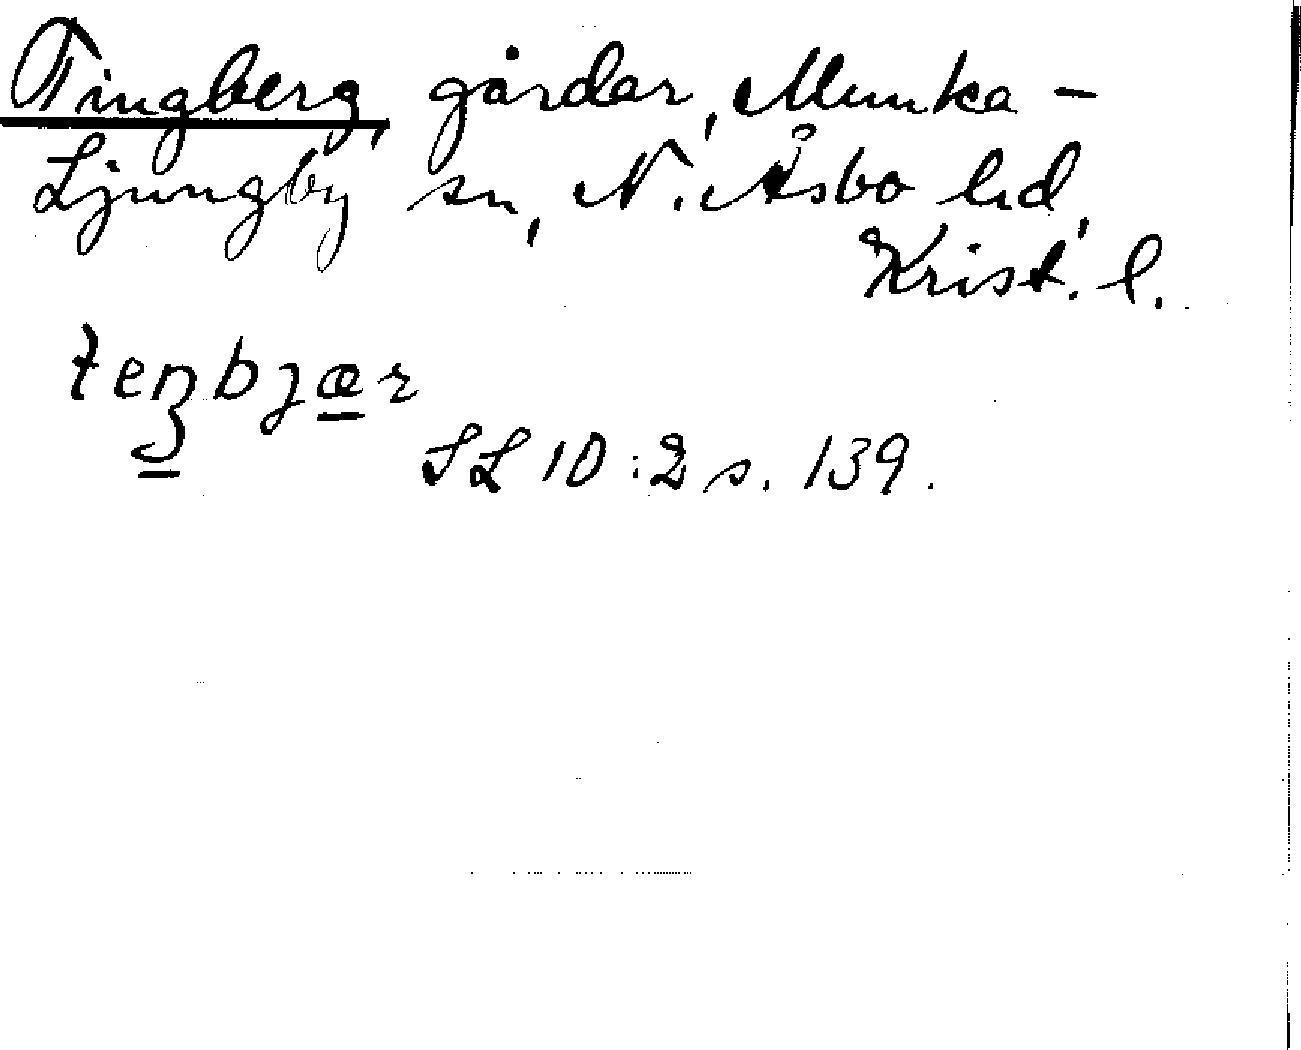 Tingberg, gårdar, Munka-
Ljungby sn, N. Åsbo hd,
Krist. l.
teŋbjær
SL 10:2 s. 139.